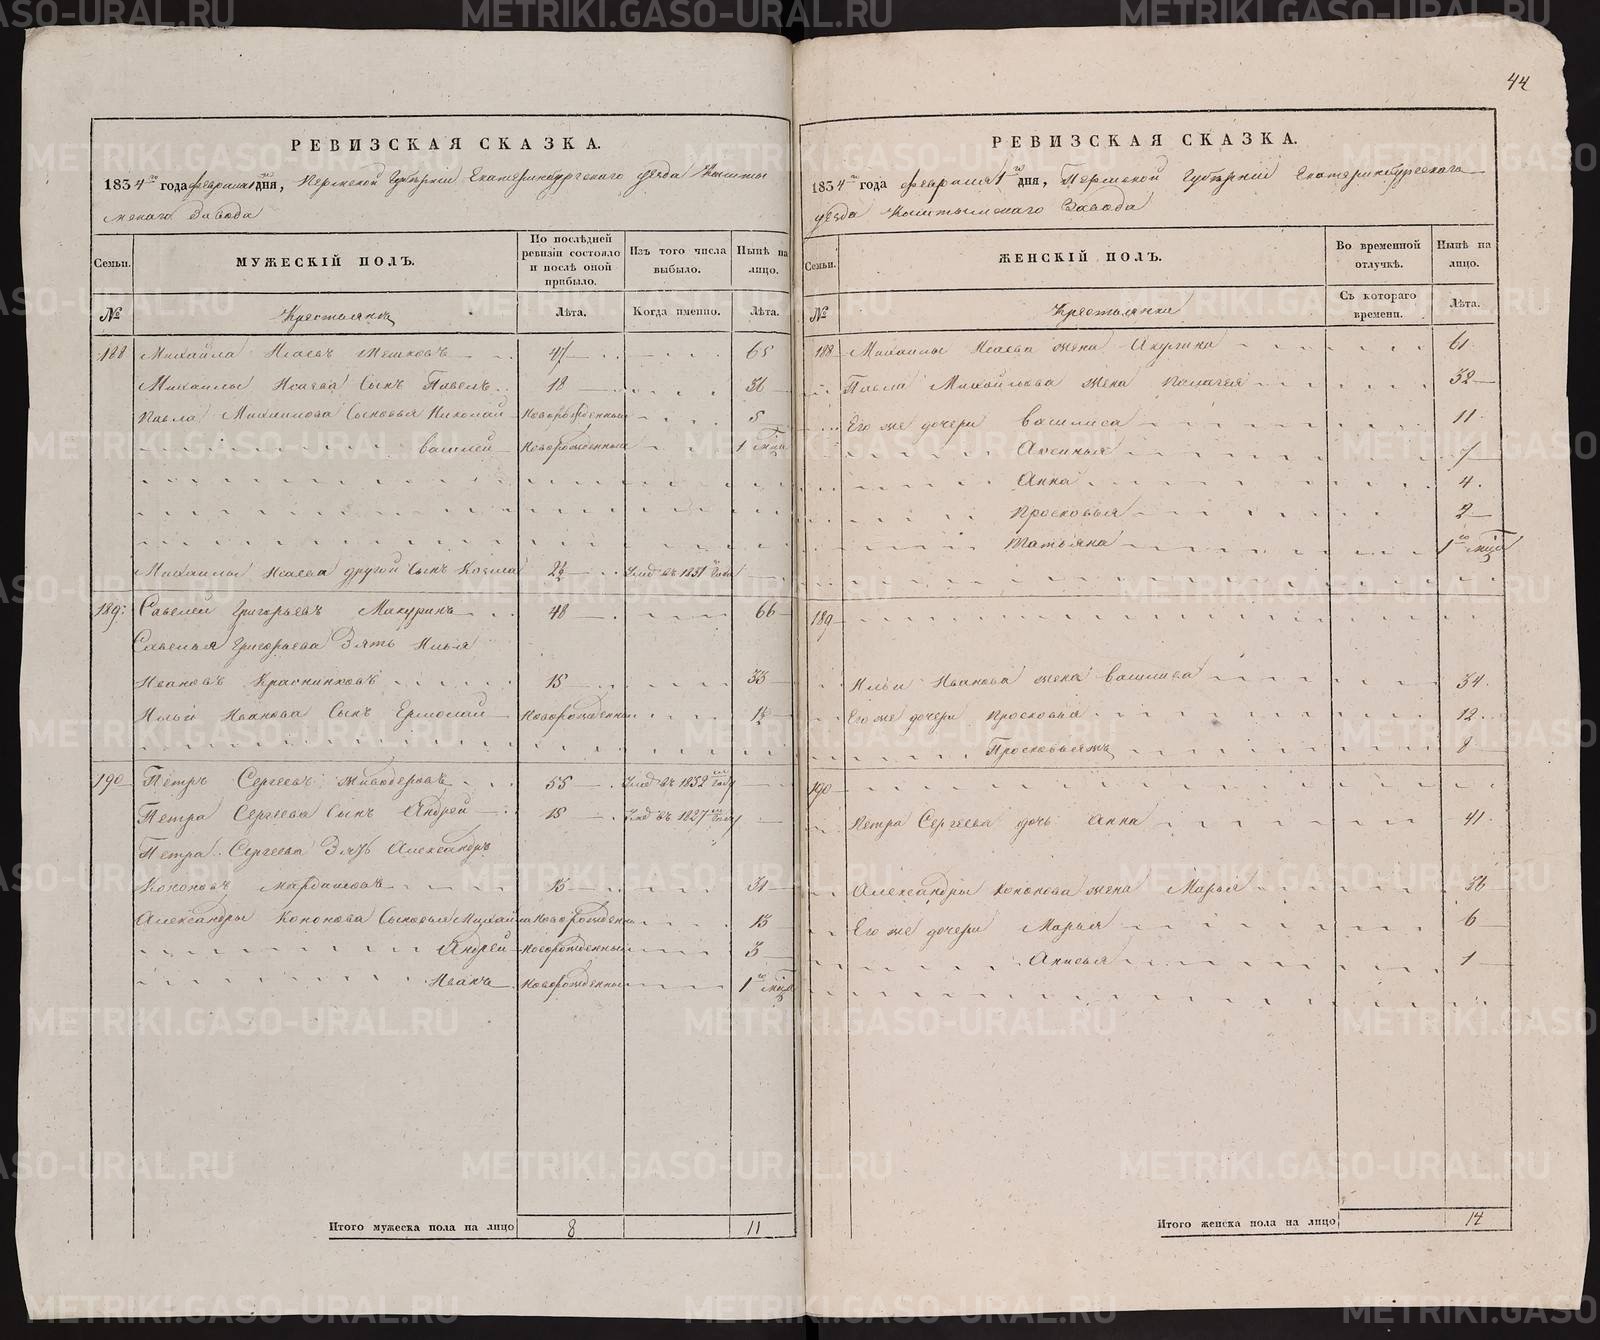 44
РЕВИЗСКАЯ СКАЗКА.
1834го года февраля 1го дня, Пермской Губернiи Екатеринбургского уезда Кышты
мскаго Завода
Семьи.
МУЖЕСКІЙ ПОЛЪ.
По послѣдней ревизіи состояло и послѣ оной прибыло.
Изъ того числа выбыло.
Нынѣ на лицо.
№
Крестьянъ
Лѣта.
Когда именно.
Лѣта.
188 Михайла Исаевъ 47 65
Михайлы Исаева Сынъ Павелъ 18 36
Павла Михайлова Сыновья Николай Новорожденный 5
Василей Новорожденный 1 мца
Михайлы Исаева другой Сынъ Козма Умѣр въ 1831 Года
189 Савелей Григорьевъ Макуринъ 48 66
Савелья Григорьева Зять Илья
Ивановъ 15 33
Ильи Иванова Сынъ Ермолай Новорожденный 1½
190 Петръ Сергеевъ Живодеровъ 55 Умѣр въ 1832м Году
Петра Сергеева Сынъ Андрей 15 Умѣр въ 1827м Году
Петра Сергеева Зять Александръ
Кононовъ 13 31
Александры Кононова Сыновья Михайла Новорожденный 13
Андрей Новорожденный 3
Иванъ Новорожденный 1го мца
Итого мужеска пола на лицо 8 11
РЕВИЗСКАЯ СКАЗКА.
1834го года февраля 1го дня, Пермской Губернiи Екатеринбургскаго
уезда Кыштымскаго Завода
Семьи.
ЖЕНСКІЙ ПОЛЪ.
Во временной отлучкѣ.
Нынѣ на лицо.
№
Крестьянки
Съ котораго времени.
Лѣта.
188 Михайлы Исаева жена Акулина 61
Павла Михайлова жена Пелагея 32
Его же дочери Василиса 11
Аксинья 7
Анна 4
Просковья 2
Татьяна 1го мца
189
Ильи Иванова жена Василиса 34
Его же дочери Просковья 12
Просковья ж 8
190
Петра Сергеева дочь Анна 41
Александры Кононова жена Марья 36
Его же дочери Марья 6
Анисья 1
Итого женска пола на лицо 14
METRIKI.GASO-URAL.RU